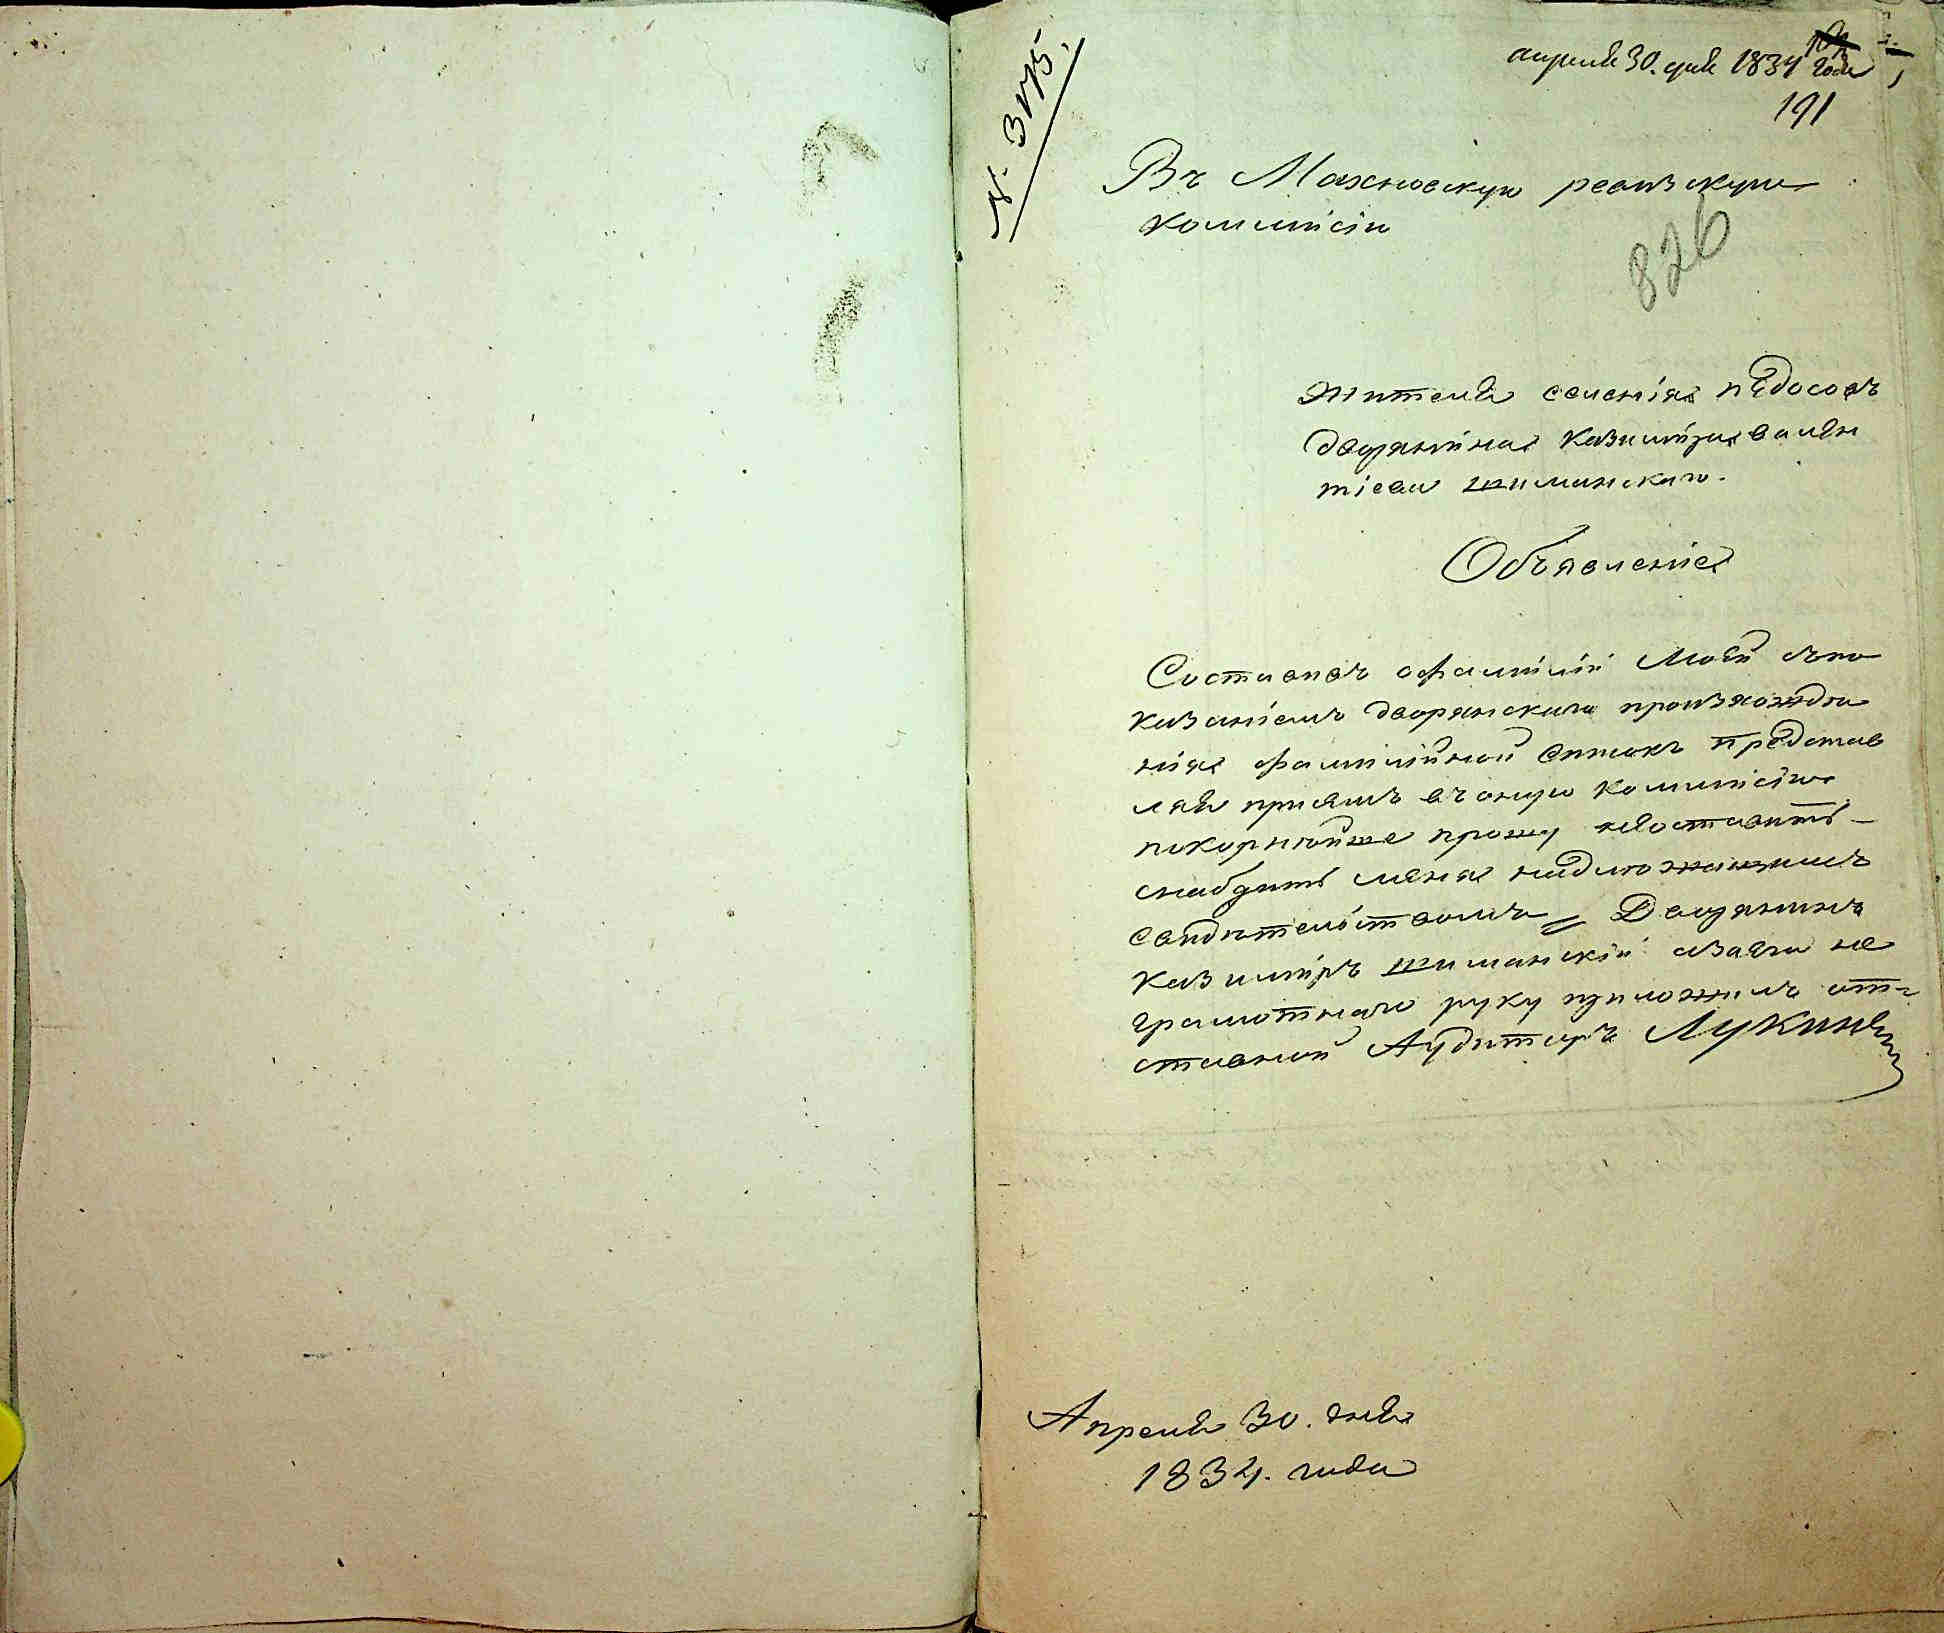 № 3175.
апреля 30. дня 1834 года
191
Въ Махновскую ревизскую
Коммисію
826
Жителя селенія
дворянина Казимира вален
тіева шиманскаго.
Объявленіе
Составивъ о фамиліи Моей съ по
казаніемъ дворянскаго произхожде
нія фамилійной списокъ представ
ляя при семъ въ оную Коммисію
покорнейше прошу неоставить
снабдить меня надлежащимъ
свидетельствомъ Дворянинъ
Казимиръ шиманскій а вместо не
грамотнаго руку приложилъ от
ставной Аудиторъ
Апреля 30. дня
1834. года